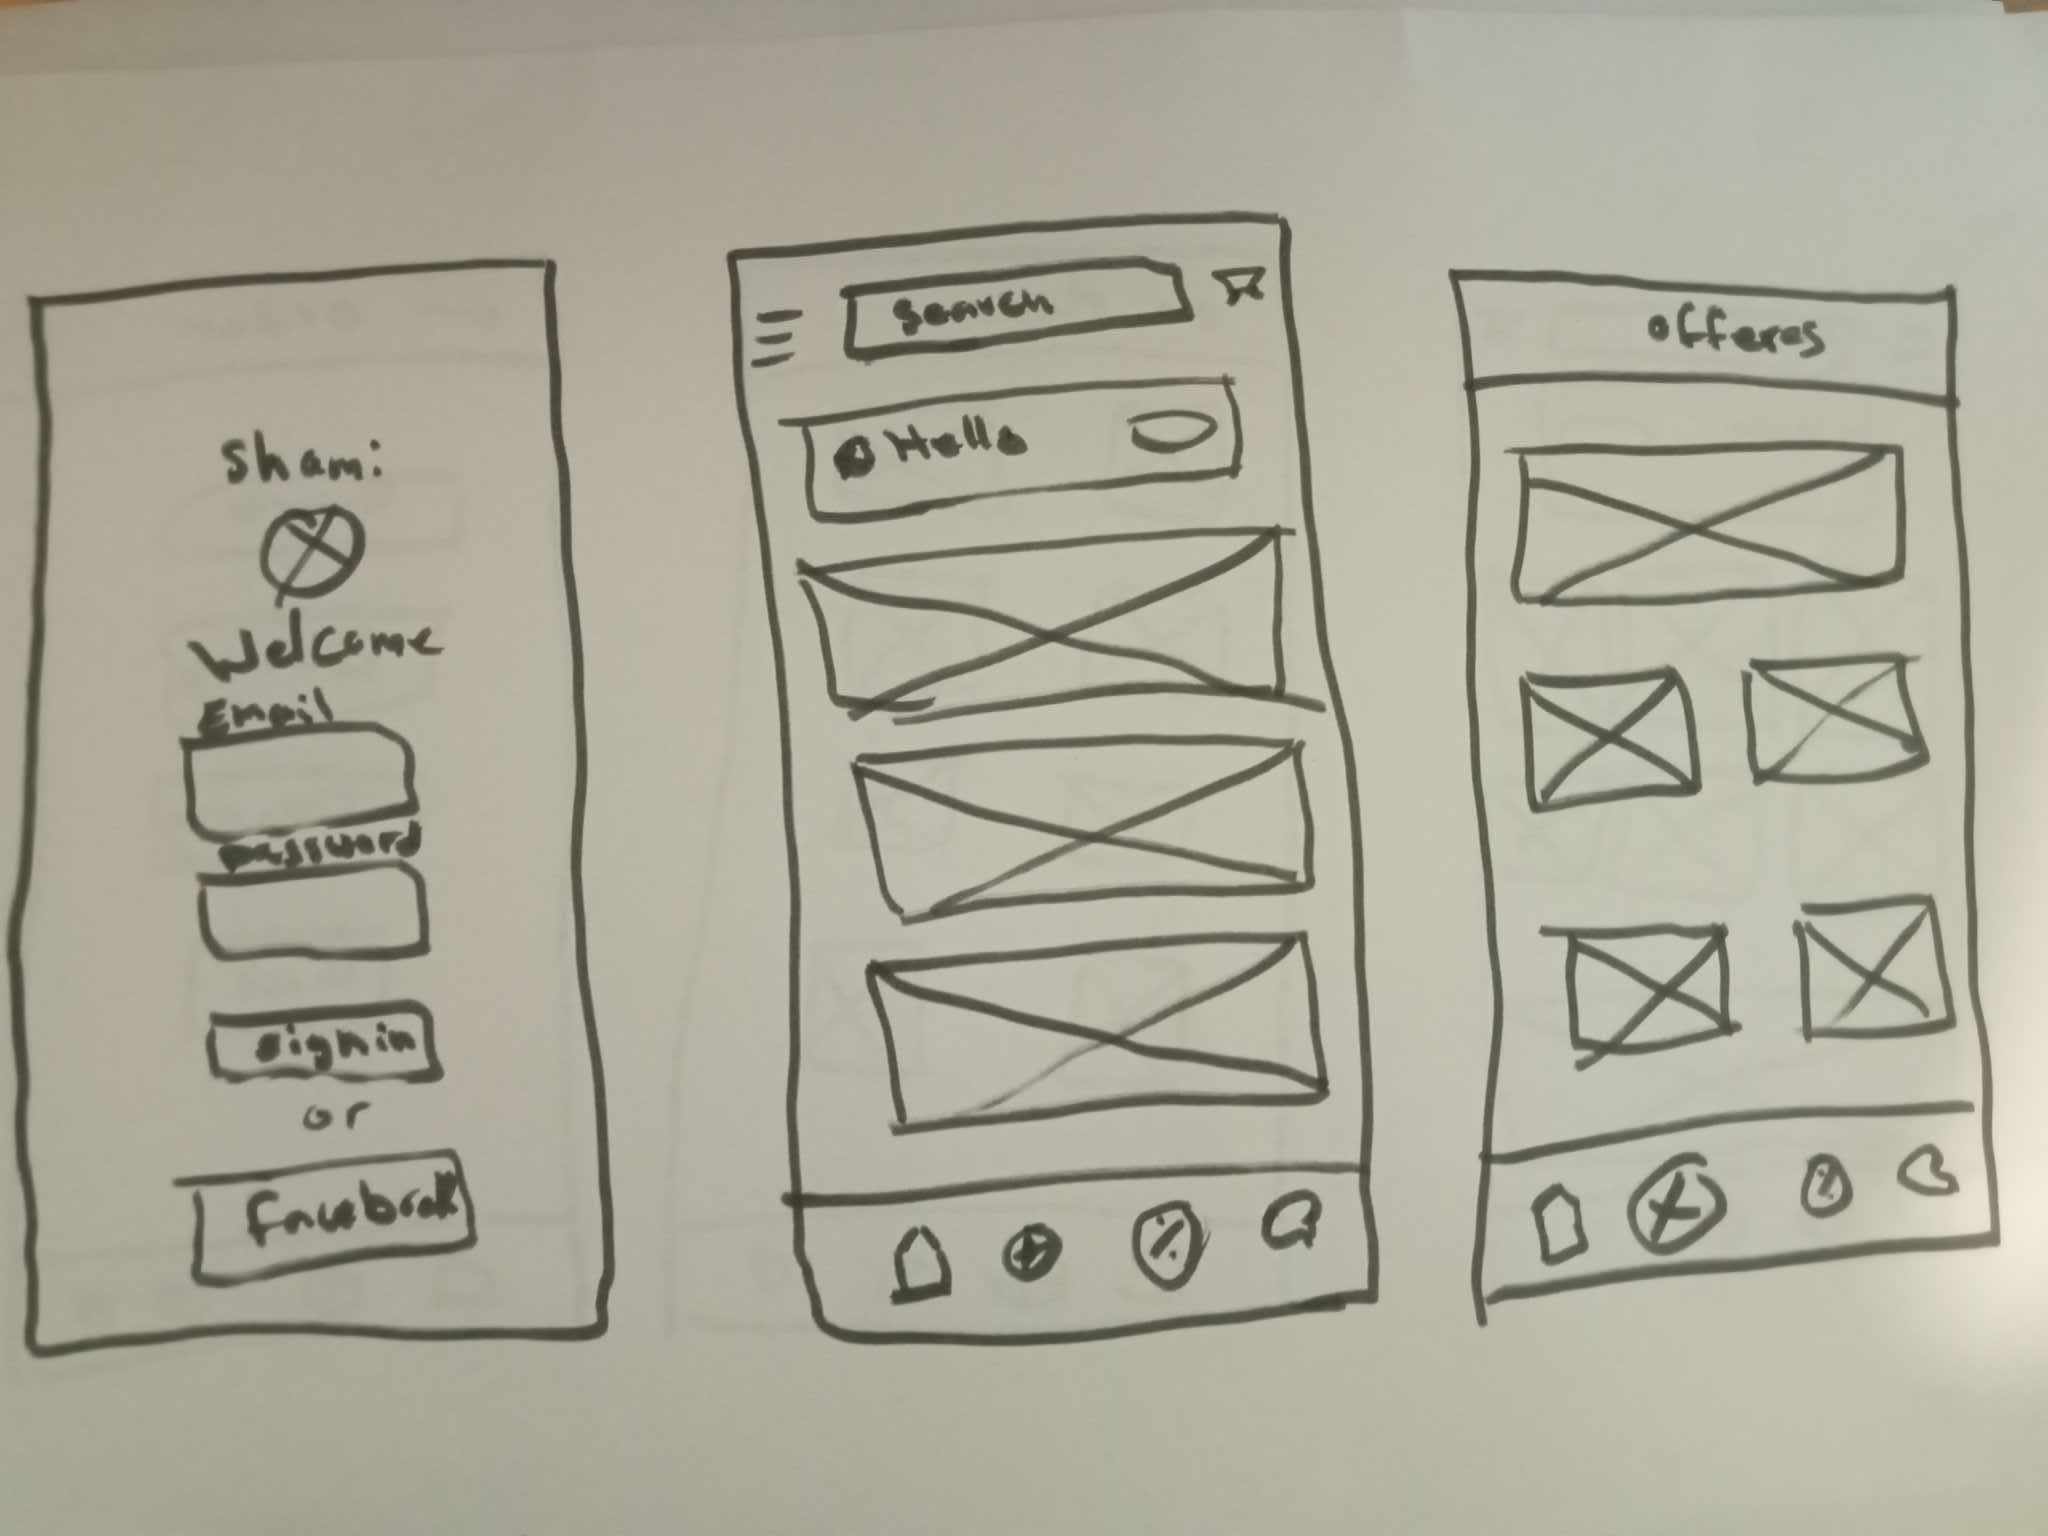 Sham:
Welcome
Email
password
signin
or
facebook
Search
Hello
offeres